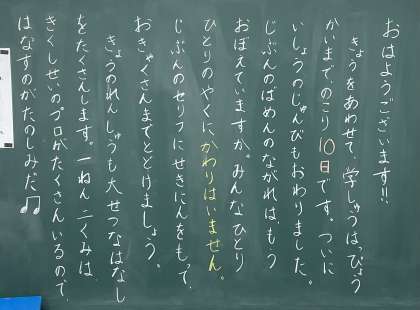 おはようございます!!
きょうをあわせて、学しゅうはっぴょう
かいまでのこり10日です。ついに
いしょうのじゅんびもおわりました。
じぶんのばめんのながれは、もう
おぼえていますか。みんなひとり
ひとりのやくにかわりはいません。
じぶんのセリフにせきにんをもって、
おきゃくさんまでとどけましょう。
きょうのれんしゅうも大せつなはなし
をたくさんします。一ねん二くみは、
きくしせいのプロがたくさんいるので、
はなすのがたのしみだ♫